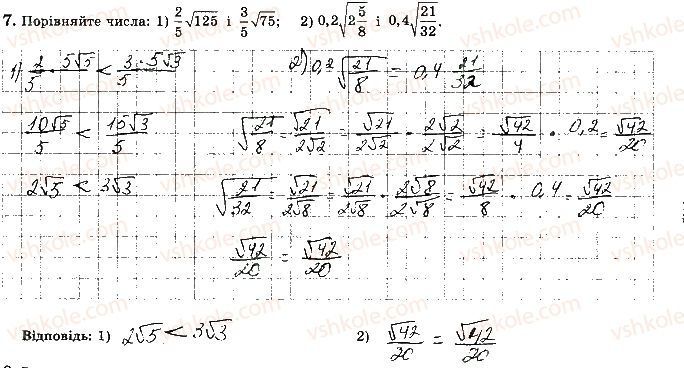 7. Порівняйте числа: 1) 2/5 √125 і 3/5 √75; 2) 0,2√(2 5/8) і 0,4√(21/32).
1) 2/5 · 5√5 < 3 · 5√3/5
2) 0,2 √(21/8) = 0,4 21/32
10√5/5 < 15√3/5
√(21/8) = √21/2√2 = √21/2√2 · 2√2/2√2 = √42/4 · 0,2 = √42/20
2√5 < 3√3
√(21/32) = √21/2√8 = √21/2√8 · 2√8/2√8 = √42/8 · 0,4 = √42/20
√42/20 = √42/20
Відповідь: 1) 2√5 < 3√3 2) √42/20 = √42/20
vshkole.com